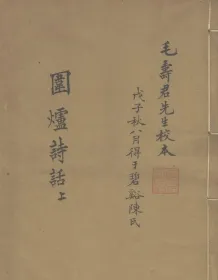 毛壽君先生校本
戊子秋八月得于碧谿陳氏
圍爐詩話上